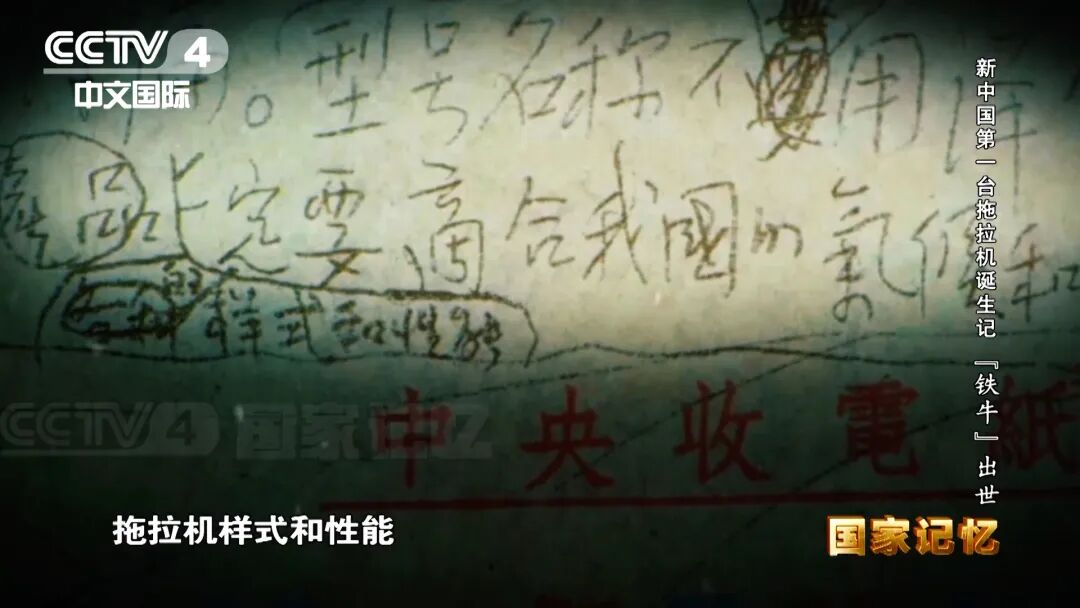 CCTV 4
中文国际
。型号名称不用洋
品一定要適合我國的氣候和
的样式和性能
中央收電紙
CCTV 4 国家记忆
拖拉机样式和性能
新中国第一台拖拉机诞生记 『铁牛』出世
国家记忆